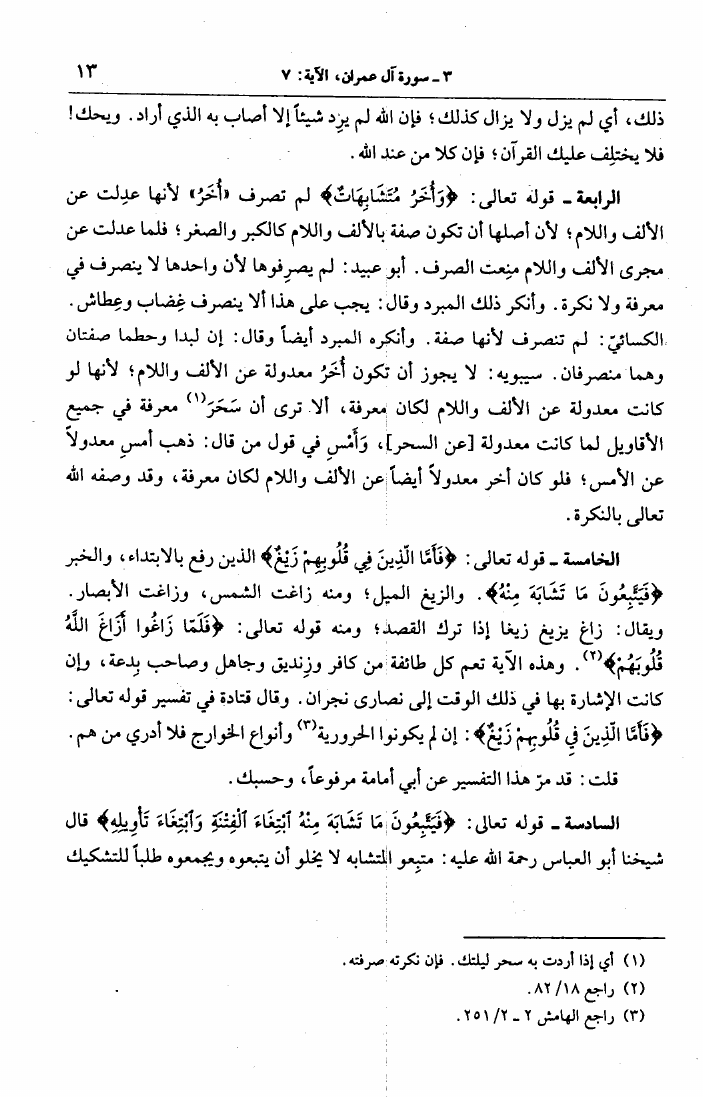 ٣ ـ سورة آل عمران، الآية: ٧
١٣
ذلك، أي لم يزل ولا يزال كذلك؛ فإن الله لم يرِد شيئاً إلا أصاب به الذي أراد. ويحك!
فلا يختلِف عليك القرآن؛ فإن كلا من عند الله.
الرابعة ـ قوله تعالى: ﴿وَأُخَرُ مُتَشَابِهَاتٌ﴾ لم تصرف «أُخَرُ» لأنها عدِلت عن
الألف واللام؛ لأن أصلها أن تكون صفة بالألف واللام كالكبر والصغر؛ فلما عدلت عن
مجرى الألف واللام منِعت الصرف. أبو عبيد: لم يصرِفوها لأن واحدها لا ينصرف في
معرفة ولا نكرة. وأنكر ذلك المبرد وقال: يجب على هذا ألا ينصرف غِضاب وعِطاش.
الكسائيّ: لم تنصرف لأنها صفة. وأنكره المبرد أيضاً وقال: إن لبدا وحطما صفتان
وهما منصرفان. سيبويه: لا يجوز أن تكون أُخَرُ معدولة عن الألف واللام؛ لأنها لو
كانت معدولة عن الألف واللام لكان معرفة، ألا ترى أن سَحَرَ(١) معرفة في جميع
الأقاويل لما كانت معدولة [عن السحر]، وَأَمْسِ في قول من قال: ذهب أمسِ معدولاً
عن الأمس؛ فلو كان أخر معدولاً أيضاً عن الألف واللام لكان معرفة، وقد وصفه الله
تعالى بالنكرة.
الخامسة ـ قوله تعالى: ﴿فَأَمَّا الَّذِينَ فِي قُلُوبِهِمْ زَيْغٌ﴾ الذين رفع بالابتداء، والخبر
﴿فَيَتَّبِعُونَ مَا تَشَابَهَ مِنْهُ﴾. والزيغ الميل؛ ومنه زاغت الشمس، وزاغت الأبصار.
ويقال: زاغ يزيغ زيغا إذا ترك القصد؛ ومنه قوله تعالى: ﴿فَلَمَّا زَاغُوا أَزَاغَ اللَّهُ
قُلُوبَهُمْ﴾(٢). وهذه الآية تعم كل طائفة من كافر وزِنديق وجاهل وصاحب بِدعة، وإن
كانت الإشارة بها في ذلك الوقت إلى نصارى نجران. وقال قتادة في تفسير قوله تعالى:
﴿فَأَمَّا الَّذِينَ فِي قُلُوبِهِمْ زَيْغٌ﴾: إن لم يكونوا الحرورية(٣) وأنواع الخوارج فلا أدري من هم.
قلت: قد مرّ هذا التفسير عن أبي أمامة مرفوعاً، وحسبك.
السادسة ـ قوله تعالى: ﴿فَيَتَّبِعُونَ مَا تَشَابَهَ مِنْهُ ٱبْتِغَاءَ ٱلْفِتْنَةِ وَٱبْتِغَاءَ تَأْوِيلِهِ﴾ قال
شيخنا أبو العباس رحمة الله عليه: متبِعو المتشابه لا يخلو أن يتبعوه ويجمعوه طلباً للتشكيك
(١) أي إذا أردت به سحر ليلتك. فإن نكرته صرفته.
(٢) راجع ١٨/ ٨٢.
(٣) راجع الهامش ٢ ـ ٢/ ٢٥١.